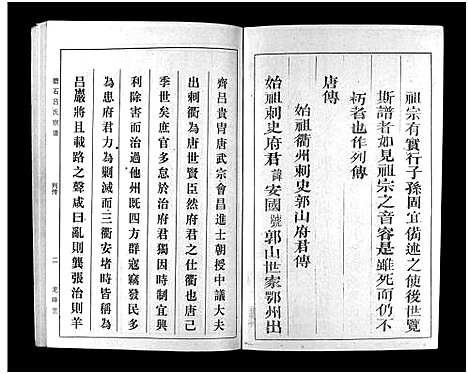 祖宗有實行子孫固宜偹述之使後世覽
斯譜者如見祖宗之音容是雖死而仍不
朽者也作列傳
唐傳
始祖衢州刺史郭山府君傳
始祖刺史府君諱安國號郭山世家鄂州出
齊呂貴胄唐武宗會昌進士朝授中議大夫
出刺衢為唐世賢臣然府君之仕衢也唐己
季世矣庶官多怠於治府君獨因時制宜興
利除害而治過他州既四方群寇竊發民多
為患府君力為剿滅而三衢安堵時皆稱為
呂嚴將且載路之聲咸曰亂則龔張治則羊
呂氏宗譜
列傳
二